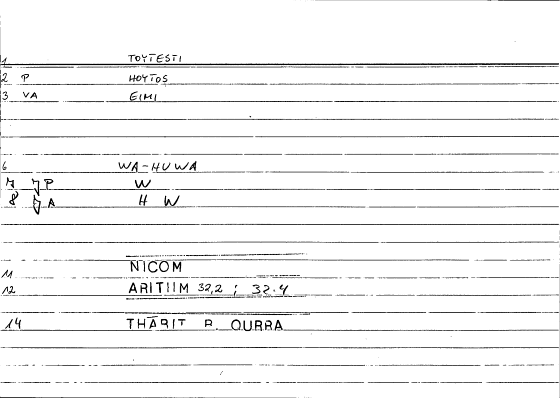 1 TOYTESTI
2 P HOYTOS
3 VA EIMI
6 WA-HUWA
7 P W
8 A H W
11 NICOM
12 ARITIIM 32,2 ; 32.4
14 THĀBIT B. QURRA